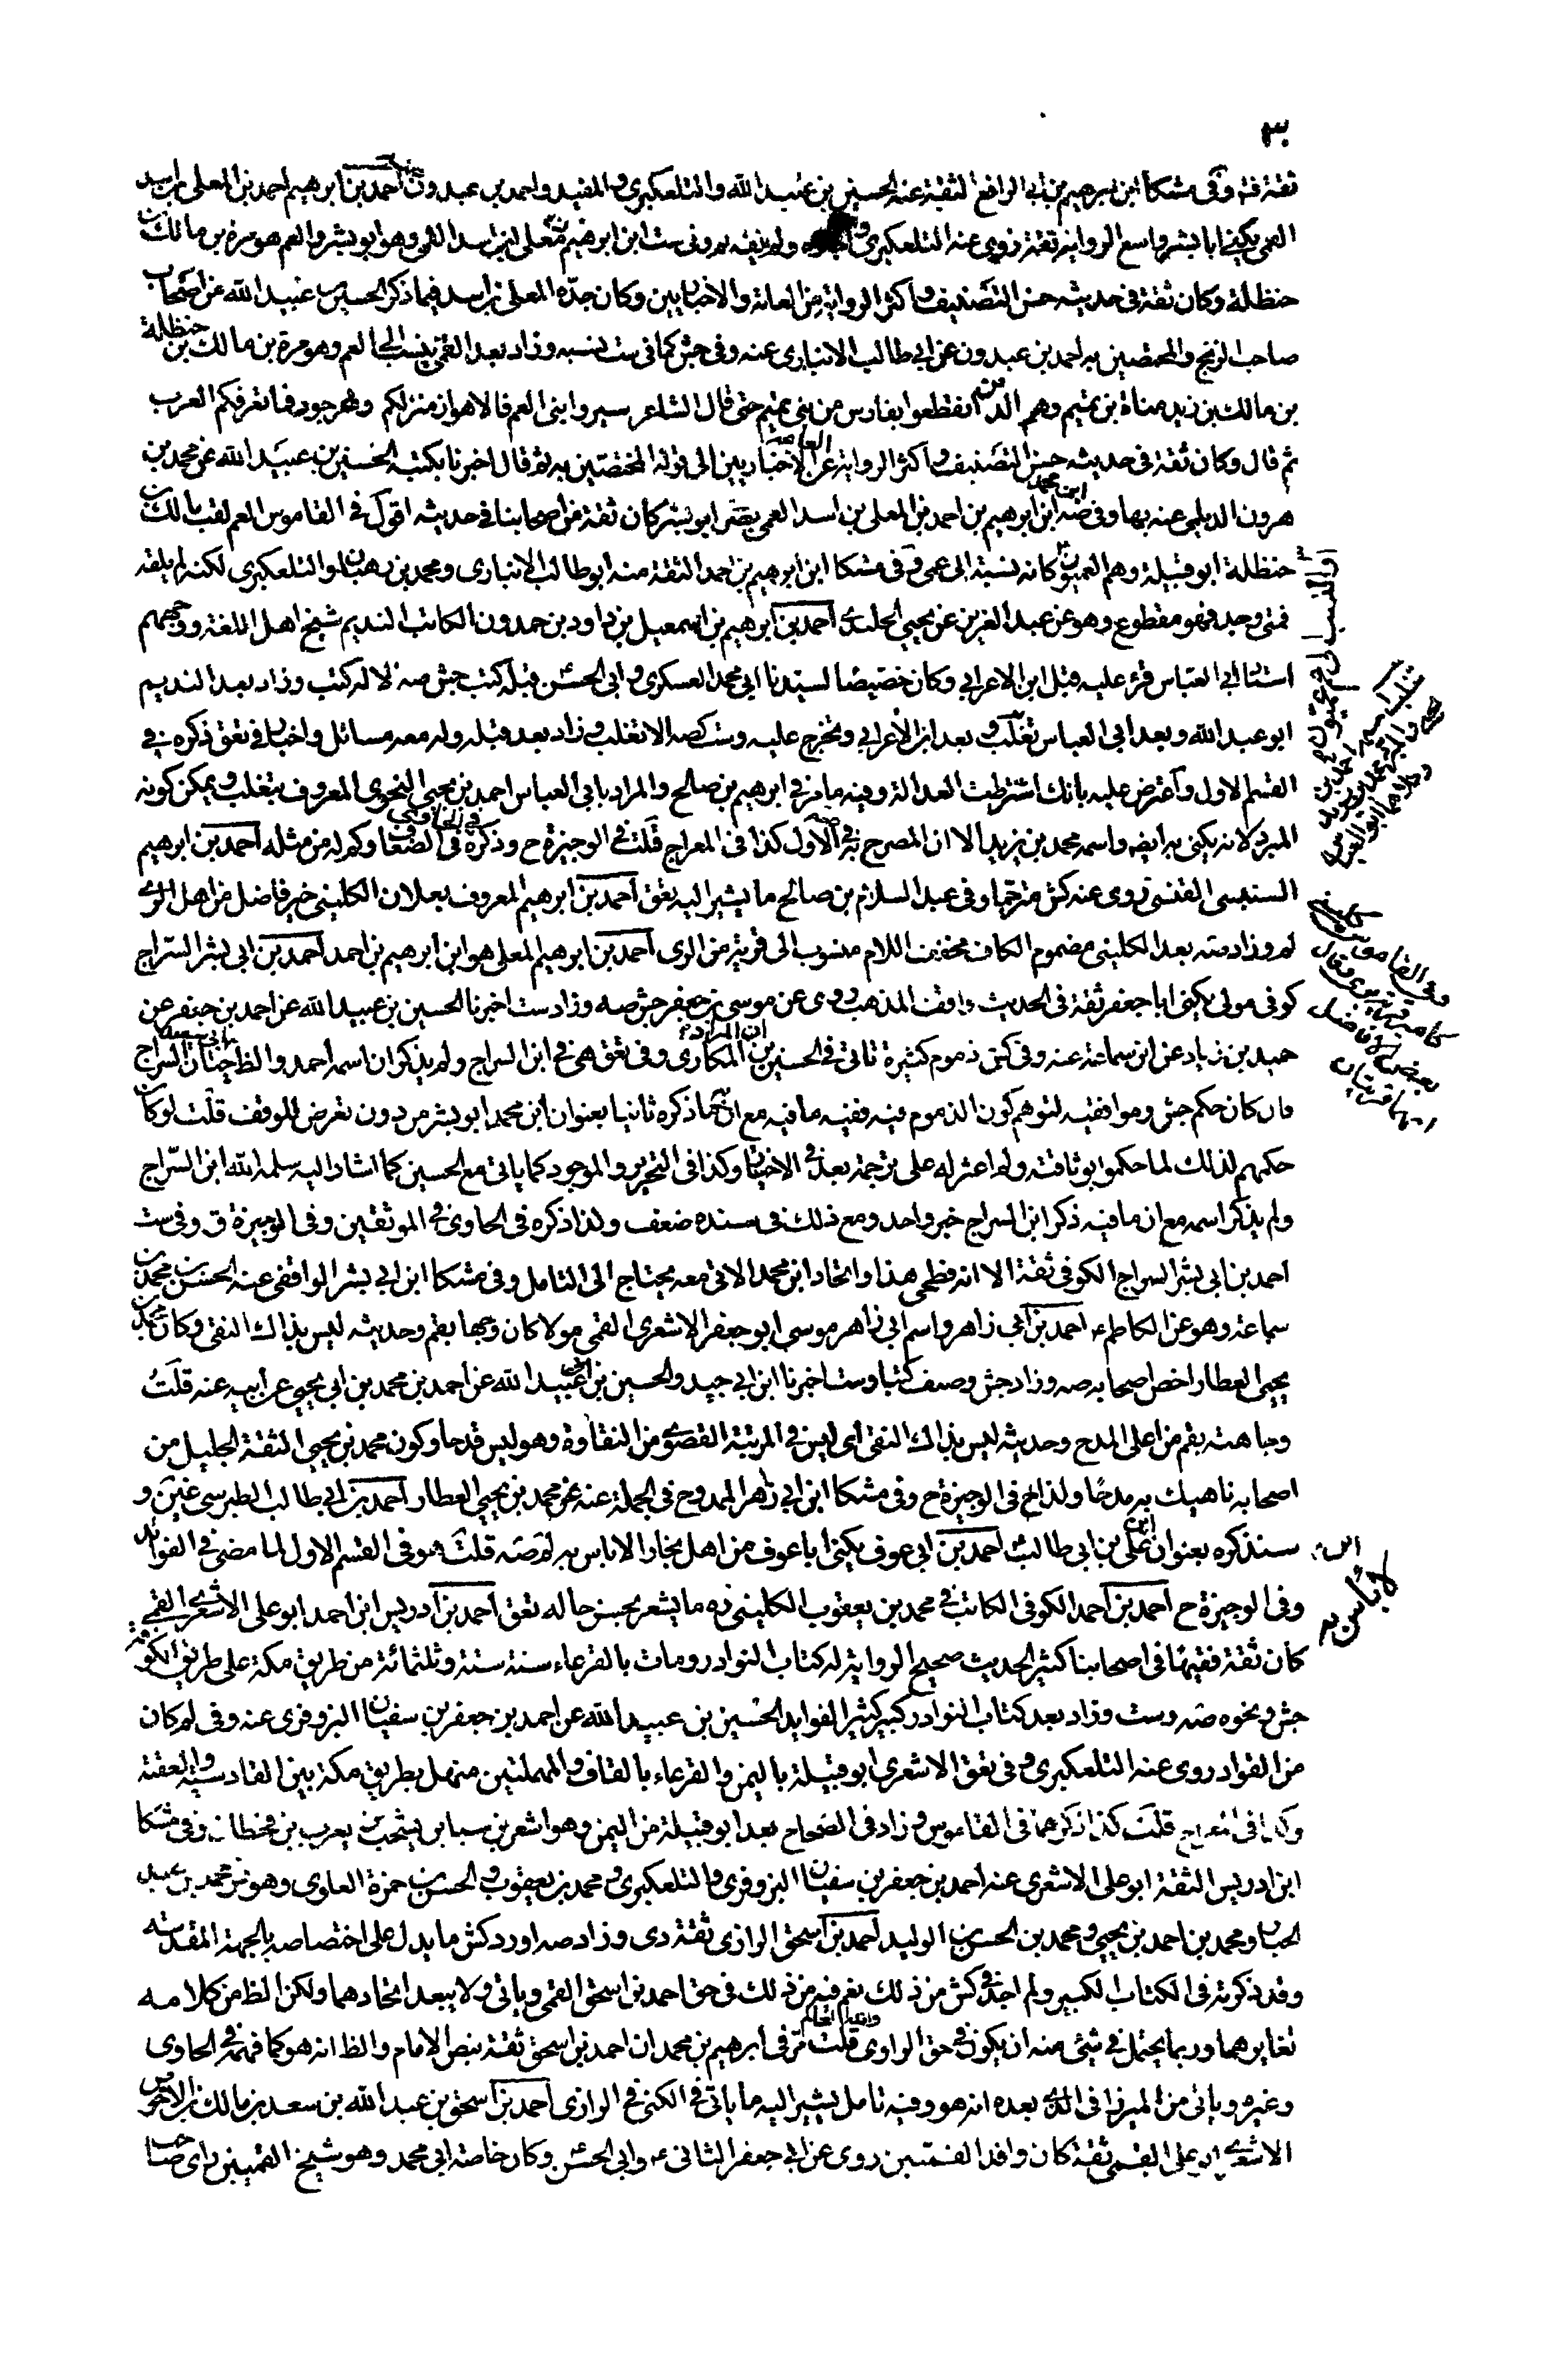 ٣٠
ثقة قة وفى مشكا ابن ابرهيم بن ابى الرافع الثقة عنه الحسين بن عبيد الله والتلعكبرى والمفيد واحمد بن عبدون احمد بن ابرهيم احمد بن المعلى بن اسد
العمى يكنى ابا بشر واسع الرواية ثقة روى عنه التلعكبرى ولم يلقه لم وفى ست ابن ابرهيم بن معلى بن اسد العمى وهو ابو بشر والعم هو مرة بن مالك بن
حنظلة وكان ثقة فى حديثه حسن التصنيف واكثر الرواية من العامة والاخباريين وكان جده المعلى بن اسد فيما ذكر الحسين بن عبيد الله عن اصحاب
صاحب الزنج والمختصين به احمد بن عبدون عن ابى طالب الانبارى عنه وفى جش كما فى ست بنسبه وزاد بعد العمى ينسب الى العم وهو مرة بن مالك بن حنظلة
بن مالك بن زيد مناة بن تميم وهم الذين انقطعوا بفارس من بنى تميم حتى قال الشاعر سيروا بنى العم فالاهواز منزلكم ونهر جور فما تعرفكم العرب
ثم قال وكان ثقة فى حديثه حسن التصنيف واكثر الرواية عن العامة الاخباريين الى قوله المختصين به ثم قال اخبرنا بكتبه الحسين بن عبيد الله عن محمد بن
هرون الديلمى عنه بها وفى صه ابن ابرهيم بن احمد بن المعلى بن اسد العمى بصرى ابو بشر كان ثقة من اصحابنا فى حديثه اقول فى القاموس العم لقب مالك بن
حنظلة ابو قبيلة وهم العميون كانه نسبة الى عمى وفى مشكا ابن ابرهيم بن احمد الثقة منه ابو طالب الانبارى ومحمد بن وهبان والتلعكبرى لكنه لم يلقه
فمتى وجد فهو مقطوع وهو عن عبد العزيز بن يحيى الجلودى احمد بن ابرهيم بن اسمعيل بن داود بن حمدون الكاتب النديم شيخ اهل اللغة ووجههم
استاد ابى العباس قرء عليه قبل ابن الاعرابى وكان خصيصا لسيدنا ابى محمد العسكرى وابى الحسن قبله له كتب جش صه الا له كتب وزاد بعد النديم
ابو عبد الله وبعد ابى العباس تغلب وبعد ابن الأعرابى وتخرج عليه وست كصه الا تغلب وزاد بعد قبله وله معه مسائل واخبار وفى تعق ذكره فى
القسم الاول واعترض عليه بانك اشترطت العدالة وفيه ما مر فى ابرهيم بن صالح والمراد بابى العباس احمد بن يحيى النحوى المعروف بثغلب ويمكن كونه
المبرد لانه يكنى به ايضه واسمه محمد بن يزيد الا ان المصرح به الاول كذا فى المعراج قلت فى الوجيزة ح وذكره فى الحاوى فى الضعفا وكم له من مثله احمد بن ابرهيم
السنسنى القتنى روى عنه كش مترحما وفى عبد السلام بن صالح ما يشير اليه تعق احمد بن ابرهيم المعروف بعلان الكلينى خير فاضل من اهل الرى
لم وزاد صه بعد الكلينى مضموم الكاف مخفف اللام منسوب الى قرية من الرى احمد بن ابرهيم المعلى هو ابن ابرهيم بن احمد احمد بن ابى بشر السراج
كوفى مولى يكنى ابا جعفر ثقة فى الحديث واقف المذهب روى عن موسى بن جعفر جش صه وزاد ست اخبرنا الحسين بن عبيد الله عن احمد بن جعفر عن
حميد بن زياد عن ابن سماعة عنه وفى كش ذموم كثيرة تاتى فى الحسين بن ابى سعيد المكارى وفى تعق هى فى ابن السراج ولم يذكر ان اسمه احمد والظ حنان السراج
فان كان حكم جش وموافقيه لتوهم كون الذموم فيه ففيه ما فيه مع انهما ذكره ثانيا بعنوان ابن محمد ابو بشر من دون تعرض للوقف قلت لو كان
حكمهم لذلك لما حكموا بوثاقته ولم اعثر له على ترجمة بعد فى الاختيار وكذا فى التحرير والموجود كما ياتى مع الحسين كما اشار اليه سلمه الله ابن السراج
ولم يذكر اسمه مع ان ما فيه ذكر ابن السراج خبر واحد ومع ذلك فى سنده ضعف ولذا ذكره فى الحاوى فى الموثقين وفى الوجيزة ق وفى ست
احمد بن ابى بشر السراج الكوفى ثقة الا انه فطحى هذا واتحاد ابن محمد الاتى معه يحتاج الى التامل وفى مشكا ابن ابى بشر الواقفى عنه الحسن بن محمد بن
سماعة وهو عن الكاظم ع احمد بن ابى زاهر واسم ابى زاهر موسى ابو جعفر الاشعرى القمى مولا كان وجها بقم وحديثه ليس بذاك النقى وكان محمد بن
يحيى العطار اخص اصحابه صه وزاد جش وصنف كتبا وست اخبرنا ابن ابى جيد والحسين بن عبيد الله عن احمد بن محمد بن يحيى عن ابيه عنه قلت
وجاهته بقم من اعلى المدح وحديثه ليس بذاك النقى اى ليس فى المرتبة القصوى من النقاوة وهو ليس قدحا وكون محمد بن يحيى الثقة الجليل من
اصحابه ناهيك به مدحا ولذا فى الوجيزة ح وفى مشكا ابن ابى زاهر الممدوح فى الجملة عنه محمد بن يحيى العطار احمد بن ابى طالب الطبرسى غير و
سنذكره بعنوان ابن على بن ابى طالب احمد بن ابى عوف يكنى ابا عوف من اهل بخارا لا باس به لم صه قلت هو فى القسم الاول لما مضى فى الفوائد
وفى الوجيزة ح احمد بن احمد الكوفى الكاتب فى محمد بن يعقوب الكلينى ره ما يشعر بحسن حاله تعق احمد بن ادريس ابن احمد ابو على الاشعرى القمى
كان ثقة فقيها فى اصحابنا كثير الحديث صحيح الرواية له كتاب النوادر ومات بالقرعاء سنة ستة وثلثمائة من طريق مكة على طريق الكوفة
جش ونحوه صه وست وزاد بعد كتاب النوادر كبير كثير الفوايد الحسين بن عبيد الله عن احمد بن جعفر بن سفيان البزوفرى عنه وفى لم كان
من القواد روى عنه التلعكبرى وفى تعق الاشعرى ابو قبيلة باليمن والقرعاء بالقاف والمهملتين منهل بطريق مكة بين القادسية والعقبة
وكذا فى المعراج قلت كذا ذكرهما فى القاموس وزاد فى الصحاح بعد ابو قبيلة من اليمن وهو اشعر بن سبا بن يشجب بن يعرب بن قحطان وفى مشكا
ابن ادريس الثقة ابو على الاشعرى عنه احمد بن جعفر بن سفيان البزوفرى والتلعكبرى ومحمد بن يعقوب والحسن بن حمزة العلوى وهو عن محمد بن عبد
الجبار ومحمد بن احمد بن يحيى ومحمد بن الحسن بن الوليد احمد بن اسحق الرازى ثقة دى وزاد صه اورد كش ما يدل على اختصاصه بالجهة المقدسه
وقد ذكرته فى الكتاب الكبير ولم اجد فى كش من ذلك نعم فيه من ذلك فى حق احمد بن اسحق القمى وياتى ولا يبعد اتحادهما ولكن الظ من كلامه
تغايرهما وربما يحتمل فى شئى منه ان يكون فى حق الراوى والله العالم قلت مر فى ابرهيم بن محمد ان احمد بن اسحق ثقة بنص الامام والظ انه هو كما فهمه فى الحاوى
وغيره وياتى من الميرزا فى الذى بعده انه هو وفيه تامل يشير اليه ما ياتى فى الكنى فى الرازى احمد بن اسحق بن عبد الله بن سعد بن مالك بن الاحوص
الاشعرى ابو على القمى ثقة كان وافد القميين روى عن ابى جعفر الثانى ع وابى الحسن وكان خاصة ابى محمد وهو شيخ القميين راى صاحب
لا باس به